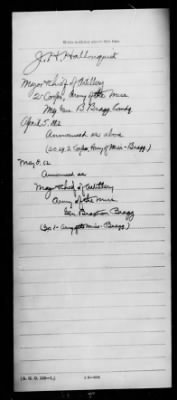 J. H. Hallonquist
Major & Chief of Artillery
2 Corps, Army of the Miss
Maj Gen B Bragg Comdg
April 5, 62
Announced as above
(So. 2 Corps, Army of Miss - Bragg.)
May 8, 62
Announced as
Major & Chief of Artillery
Army of the Miss
Gen Braxton Bragg
(So 1 - Army of the Miss - Bragg.)